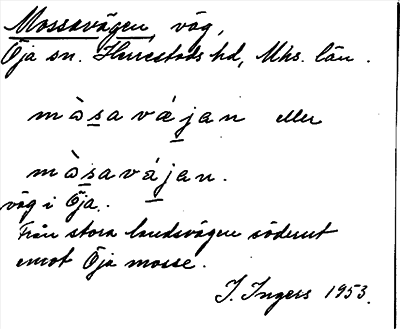 Mossavägen, väg,
Öja sn. Herrestads hd, Mhs. län.
mòsavájan eller
mòsavájan.
väg i Öja.
Från stora landsvägen söderut
emot Öja mosse.
I. Ingers 1953.